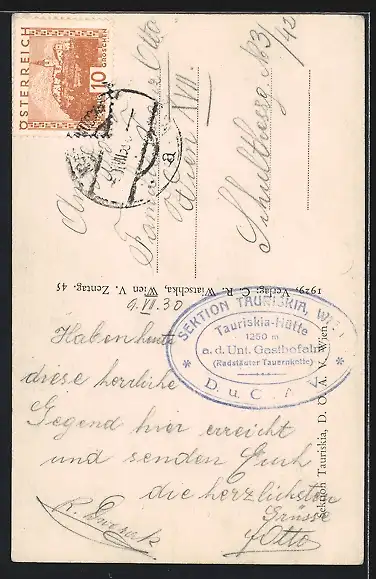 ÖSTERREICH
10
GROSCHEN
An
Familie
Otto
Wien XVII.
Schulthesg. N. 3
/42
1929, Verlag: C. R. Wiatschka, Wien V. Zentag. 45
Sektion Tauriskia, D. Ö. A. V., Wien.
SEKTION TAURISKIA, WIEN
Tauriskia-Hütte
1250 m
a. d. Unt. Gasthofalm
(Radstädter Tauernkette)
D. u. Ö. A. V.
9. VII. 30
Haben heute
diese herrliche
Gegend hier erreicht
und senden Euch
die herzlichsten
Grüsse
Otto